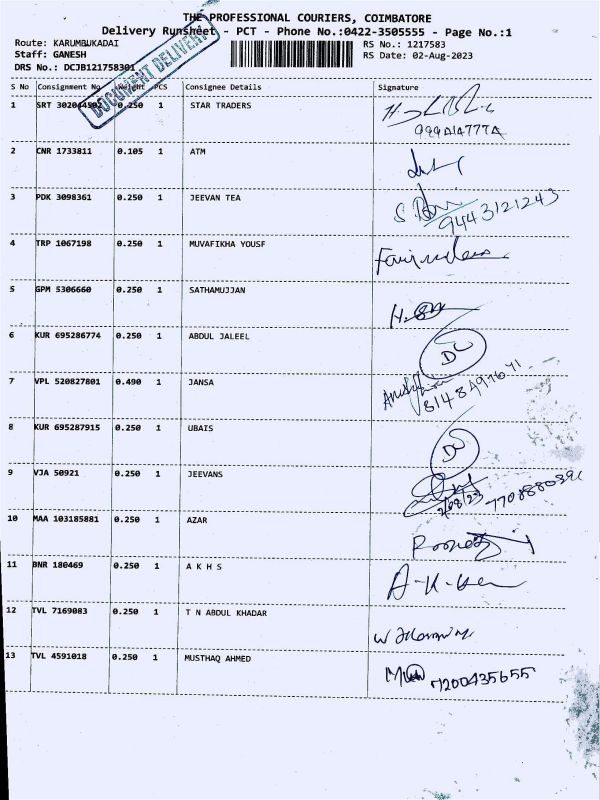 THE PROFESSIONAL COURIERS, COIMBATORE
Delivery Runsheet - PCT - Phone No.:0422-3505555 - Page No.:1
Route: KARUMBUKADAI RS No.: 1217583
Staff: GANESH RS Date: 02-Aug-2023
DRS No.: DCJB121758301
DOCUMENT DELIVERY
S No Consignment No Weight PCS Consignee Details Signature
1 SRT 302044502 0.250 1 STAR TRADERS
2 CNR 1733811 0.105 1 ATM
3 PDK 3098361 0.250 1 JEEVAN TEA
9443121243
4 TRP 1067198 0.250 1 MUVAFIKHA YOUSF
5 GPM 5306660 0.250 1 SATHAMUJJAN
6 KUR 695286774 0.250 1 ABDUL JALEEL
7 VPL 520827801 0.490 1 JANSA
8 KUR 695287915 0.250 1 UBAIS
9 VJA 50921 0.250 1 JEEVANS
10 MAA 103185881 0.250 1 AZAR
11 BNR 180469 0.250 1 A K H S
12 TVL 7169083 0.250 1 T N ABDUL KHADAR
13 TVL 4591018 0.250 1 MUSTHAQ AHMED
7200435655